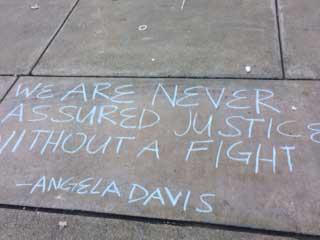 WE ARE NEVER
ASSURED JUSTICE
WITHOUT A FIGHT
-ANGELA DAVIS